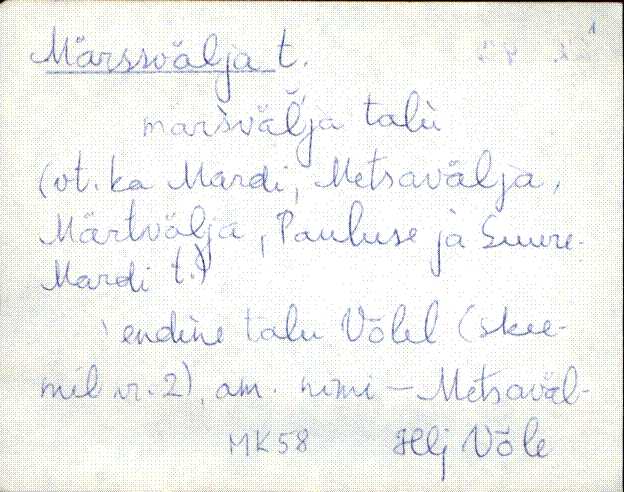 1
Märssvälja t.
marsvälja talu
(vt. ka Mardi, Metsavälja,
Märtvälja, Pauluse ja Suure-
Mardi t.)
endine talu Võlel (skee-
mil nr. 2), am. nimi – Metsaväl-
MK58 Hlj Võle